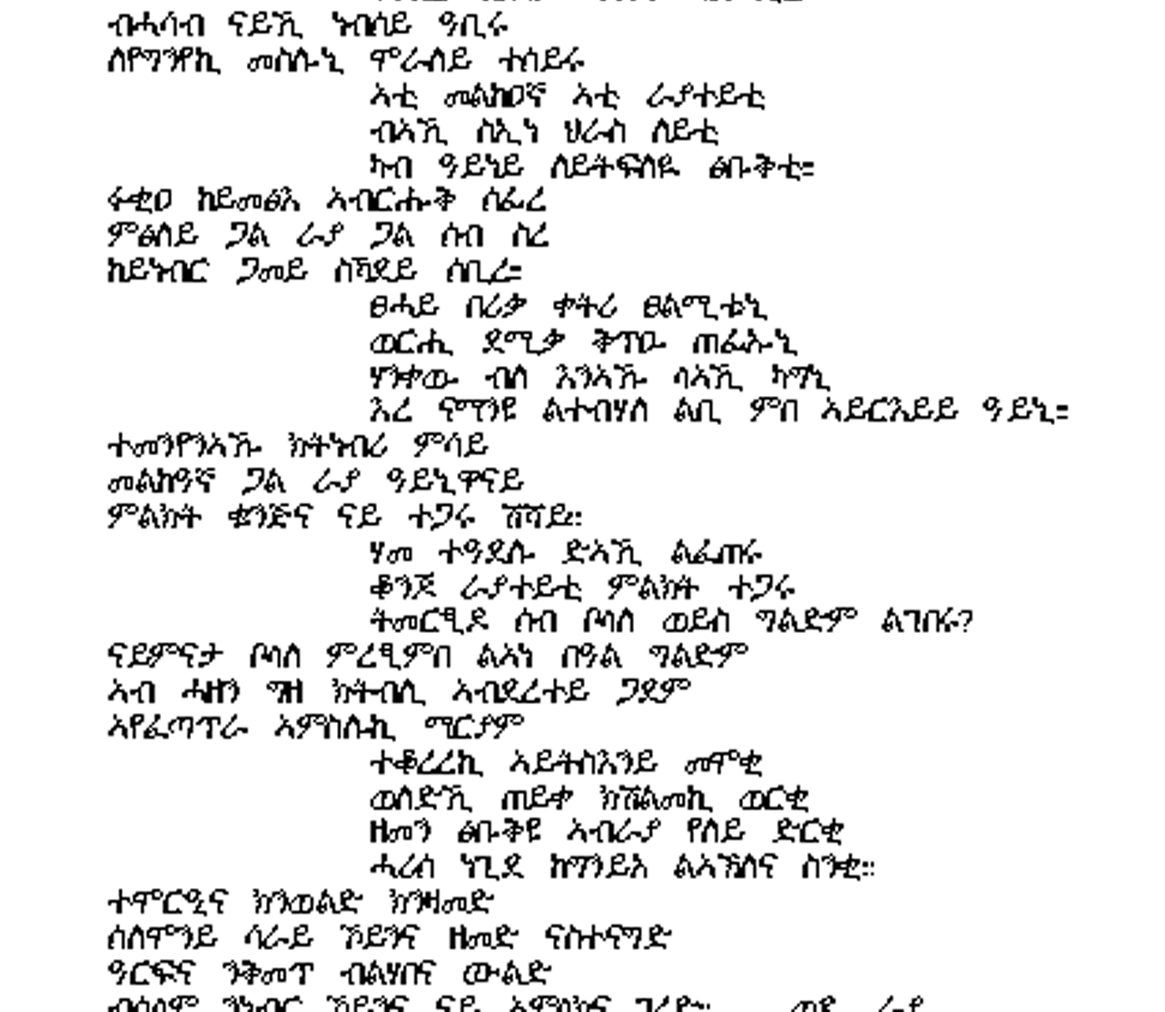 ብሓሳብ ናይኺ ነብሰይ ዓቢሩ
ለየግንየኪ መስሉኒ ሞራለይ ተሰይሩ
ኣቲ መልከዐኛ ኣቲ ራያተይቲ
ብኣኺ ስኢነ ህራስ ለይቲ
ካብ ዓይነይ ለይትፍለዪ ፅቡቅቲ።
ፋቂዐ ከይመፅእ ኣብርሑቅ ሰፊረ
ምፅለይ ጋል ራያ ጋል ሰብ ስረ
ከይነብር ጋመይ ስኻደይ ሰቢረ።
ፀሓይ በሪቃ ቀትሪ ፀልሚቴኒ
ወርሒ ደሚቃ ቅጥዑ ጠፊኡኒ
ሃንቀው ብለ እንኣኹ ሳኣኺ ካማኒ
እረ ናማንዩ ልተብሃለ ልቢ ምበ ኣይርእይይ ዓይኒ።
ተመንየንኣኹ ክትነብሪ ምሳይ
መልከዓኛ ጋል ራያ ዓይኒዋናይ
ምልክት ቁንጅና ናይ ተጋሩ ሽሻይ።
ሃመ ተዓደሉ ድኣኺ ልፈጠሩ
ቆንጆ ራያተይቲ ምልክት ተጋሩ
ትመርፂዶ ሰብ ቦሳለ ወይስ ግልድም ልገበሩ?
ናይምናታ ቦሳለ ምረፂምበ ልኣነ በዓል ግልድም
ኣብ ሓዘን ግዘ ክትብሊ ኣብደረተይ ጋደም
ኣየፈጣጥራ ኣምስሉኪ ማርያም
ተቆረረኪ ኣይትስእንይ መሞቂ
ወለድኺ ጠይቀ ክሽልመኪ ወርቂ
ዘመን ፅቡቅዩ ኣብራያ የለይ ድርቂ
ሓረሰ ነጊደ ከማንይእ ልኣኽለና ስንቂ።
ተሞርዒና ክንወልድ ክንዛመድ
ሰለሞንይ ሳራይ ኾይንና ዘመድ ናስተናግድ
ዓርፍና ንቅመጥ ብልሃበና ውልድ